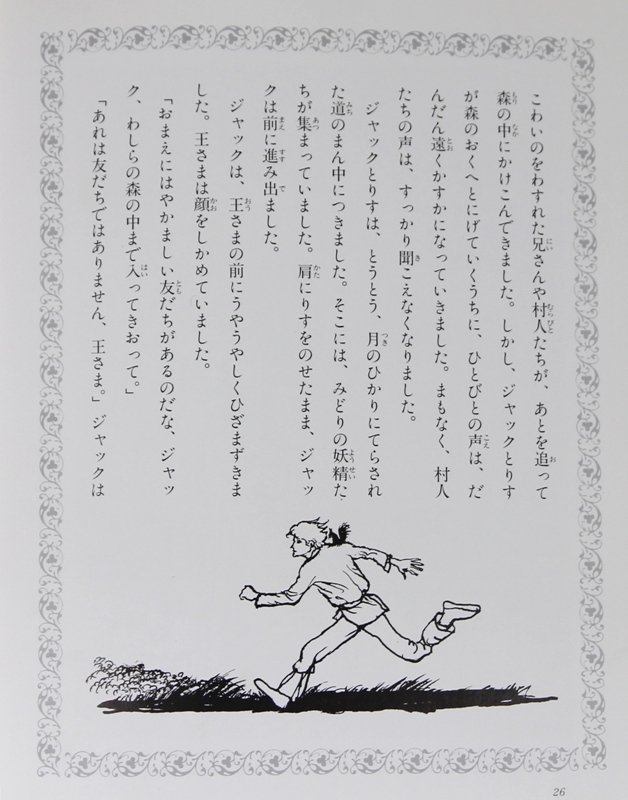 こわいのをわすれた兄さんや村人たちが、あとを追って
森の中にかけこんできました。しかし、ジャックとりす
が森のおくへとにげていくうちに、ひとびとの声は、だ
んだん遠くかすかになっていきました。まもなく、村人
たちの声は、すっかり聞こえなくなりました。
ジャックとりすは、とうとう、月のひかりにてらされ
た道のまん中につきました。そこには、みどりの妖精た
ちが集まっていました。肩にりすをのせたまま、ジャッ
クは前に進み出ました。
ジャックは、王さまの前にうやうやしくひざまずきま
した。王さまは顔をしかめていました。
「おまえにはやかましい友だちがあるのだな、ジャッ
ク、わしらの森の中まで入ってきおって。」
「あれは友だちではありません、王さま。」ジャックは
26